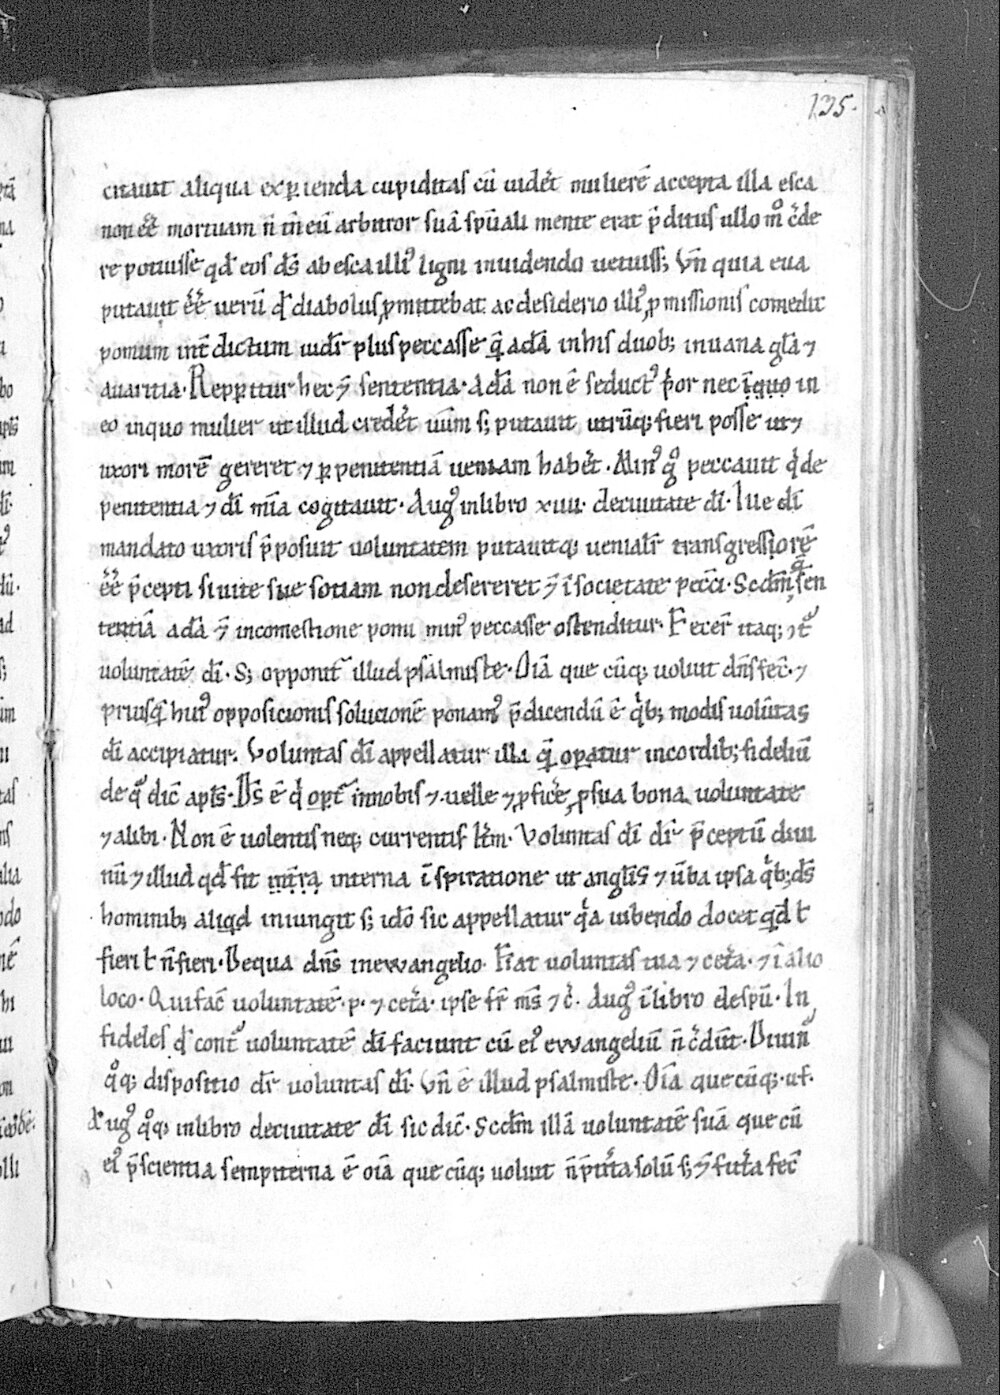 135.
citauit aliqua experienda cupiditas cū uidēt mulierē accepta illa esca
non eē mortuam n̄ tn̄ eū arbitror suā spūali mente erat p̄ditus ullo mͦ cͥde
re potuisse qđ eos dꝰ ab esca illiꝰ ligni inuidendo uetuisset; Vn̄ quia eua
putauit eē̄ uerū qđ diabolus ꝓmittebat ac desiderio illiꝰ ꝓmissionis comedit
pomum int̄dictum uidet̄ plus peccasse qͣ̄ adā in his duob; in uana gl̄a ⁊
auaritia. Repperitur hec ⁊̄ sententia. Adā non ē seductꝰ pͥor nec in quo in
eo in quo mulier ut illud credet̄ uūm s; putauit utrūq; fieri posse ut ⁊
uxori morē gereret ⁊ ꝑ penitentiā ueniam habet̄. Minꝰ gͦ peccauit qͥ de
penitentia ⁊ dī mīa cogitauit. Augꝰ in libro xiiii. de ciuitate dī. Iue dī
mandato uxoris p̄posuit uoluntatem putauitq; uenialē transgressionē
eē̄ p̄cepti si uite sue sotiam non desereret ⁊̄ ī societate peccī. Scdm̄ qͣ̄ sen
tentiā adā ⁊̄ in comestione pomi minꝰ peccasse ostenditur. Fecer̄ itaq; ⁊tͬ
uoluntatē dī. S; opponit̄ illud psalmiste. Oīa que cūq; uoluit dn̄s fec̄. ⁊
priusq̄ huiꝰ opposicionis solucionē ponamꝰ p̄dicendū ē qͥb; modis uolūtas
dī accipiatur. Voluntas dī appellatur illa qͣ̄ operatur in cordib; fideliū
de qͣ dic̄ apl̄s. Ds̄ ē qͥ opat̄ in nobis ⁊ uelle ⁊ ꝑficͤe ꝓ sua bona uoluntate
⁊ alibi. Non ē uolentis neq; currentis h̄m. Voluntas dī dr̄ p̄ceptū diui
nū ⁊ illud qđ fit intͣ interna īspiratione ut angl̄is ⁊ ūba ipsa qͥb; dꝰ
hominib; aliqd iniungit s; ido sic appellatur qͣa iubendo docet qđ ł
fieri ł n̄ fieri. De qua dn̄s in ewangelio. Fiat uoluntas tua ⁊ cetͣa. ⁊ ī alio
loco. Qui fac̄ uoluntatē. p. ⁊ cetͣa. ipse fr̄ ms̄ ⁊ c̄. Augꝰ ī libro de spū. In
fideles qͥ contͣ uoluntatē dī faciunt cū eiꝰ ewangeliū n̄ cͥdūt. Diuinͣ
qͦq; dispositio dr̄ uoluntas dī. Vn̄ ē illud psalmiste. Oīa que cūq; uł.
Augꝰ qͦq; in libro de ciuitate dī sic dic̄. Scdm̄ illā uoluntatē suā que cū
eiꝰ p̄scientia sempiterna ē oīa que cūq; uoluit n̄ p̄tͣita solū s; ⁊̄ futͣa fec̄